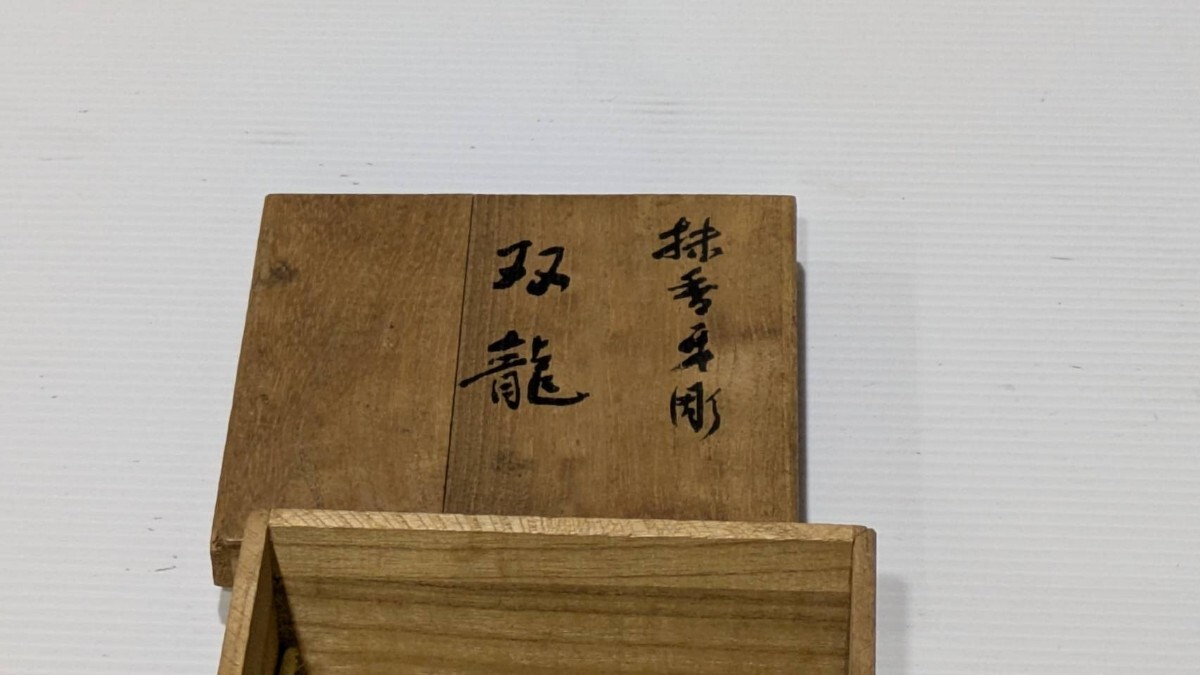 抹香牙彫
双龍